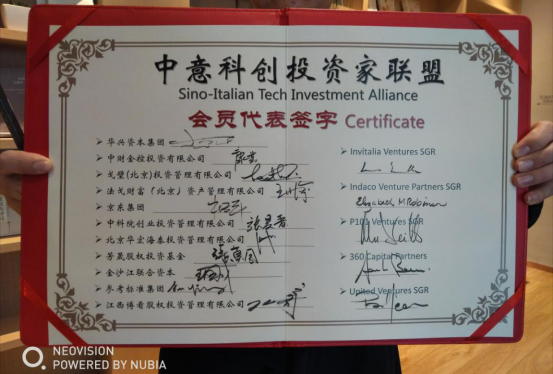 中意科创投资家联盟
Sino-Italian Tech Investment Alliance
会员代表签字 Certificate
➢ 华兴资本集团
➢ 中财金控投资有限公司
➢ 戈壁(北京)投资管理有限公司
➢ 法戈财富(北京)资产管理有限公司
➢ 京东集团
➢ 中科院创业投资管理有限公司
➢ 北京华宏海泰投资管理有限公司
➢ 芳晟股权投资基金
➢ 金沙江联合资本
➢ 参考标准集团
➢ 江西博看股权投资管理有限公司
➢ Invitalia Ventures SGR
➢ Indaco Venture Partners SGR
Elizabeth M Robinson
➢ P101 Ventures SGR
➢ 360 Capital Partners
➢ United Ventures SGR
NEOVISION
POWERED BY NUBIA